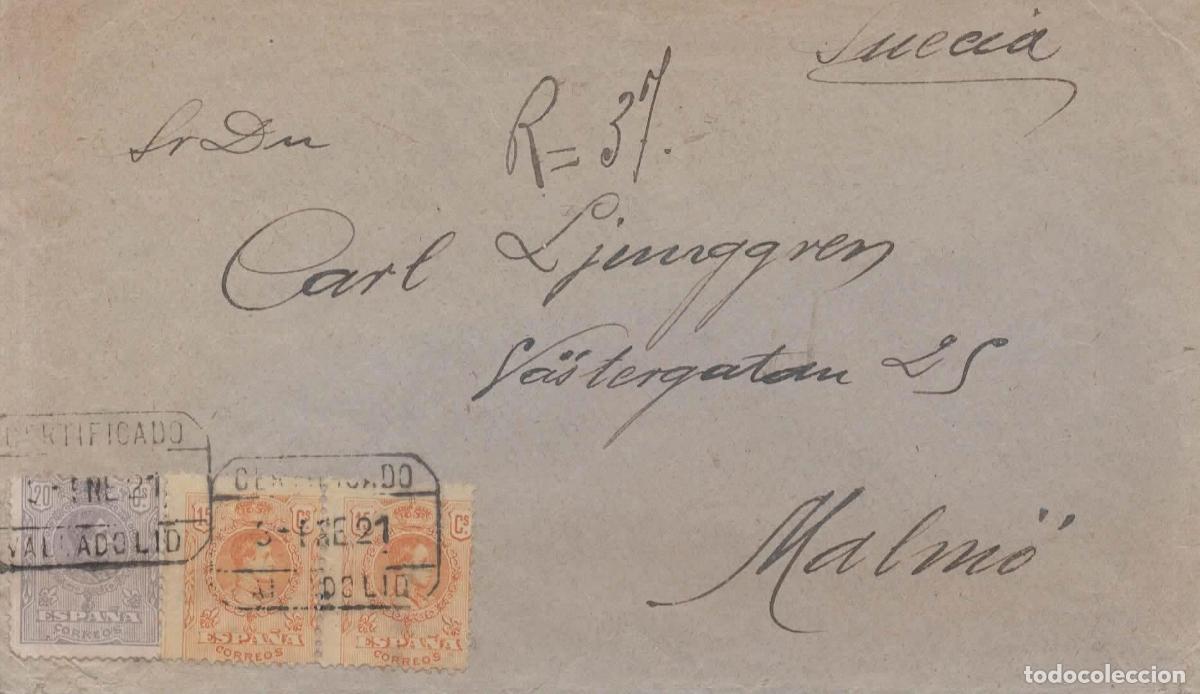 Suecia
Sr Dn
R = 37.
Carl Ljunggren
Västergatan 25
Malmö
CERTIFICADO
3-ENE 21
VALLADOLID
CERTIFICADO
3-ENE 21
VALLADOLID
20 Cs
ESPAÑA
CORREOS
15 Cs
ESPAÑA
CORREOS
15 Cs
ESPAÑA
CORREOS
todocoleccion